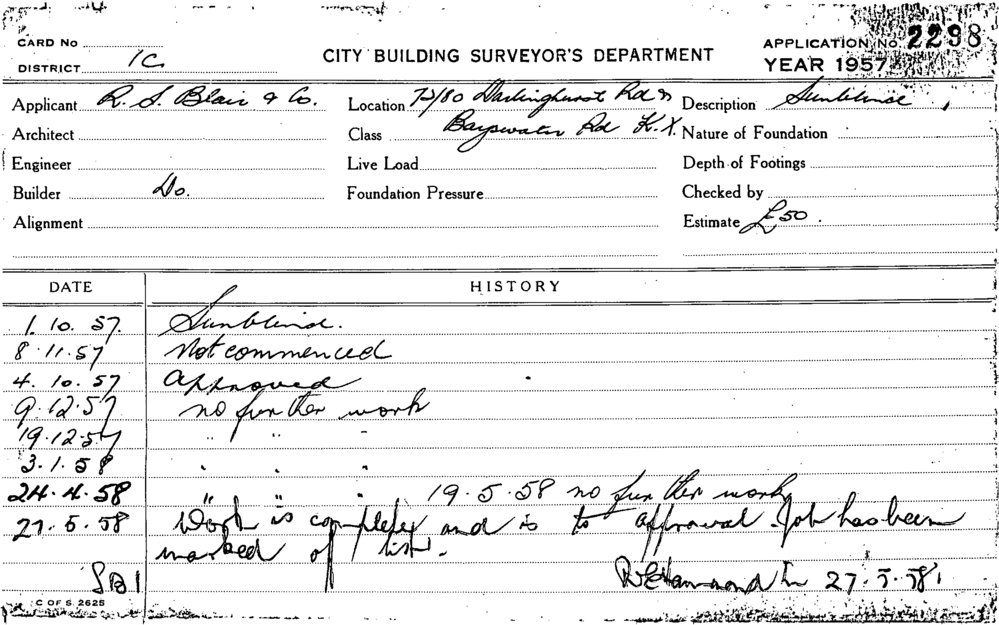 CARD No
DISTRICT 1C
CITY BUILDING SURVEYOR'S DEPARTMENT
APPLICATION No. 2298
YEAR 1957
Applicant R. S. Blair & Co.
Location 72/80 Darlinghurst Rd &
Description Sunblind
Architect
Class Bayswater Rd K.X.
Nature of Foundation
Engineer
Live Load
Depth of Footings
Builder Do.
Foundation Pressure
Checked by
Alignment
Estimate £50.
DATE HISTORY
1. 10. 57. Sunblind.
8.11.57 Not commenced
4. 10. 57 Approved
9.12.57 no further work
19.12.57 " " "
3.1.58 " " "
24.4.58 " " " 19.5.58 no further work
27.5.58 Work is complete and is to approval. Job has been
marked of list.
27.5.58
C OF S 2625